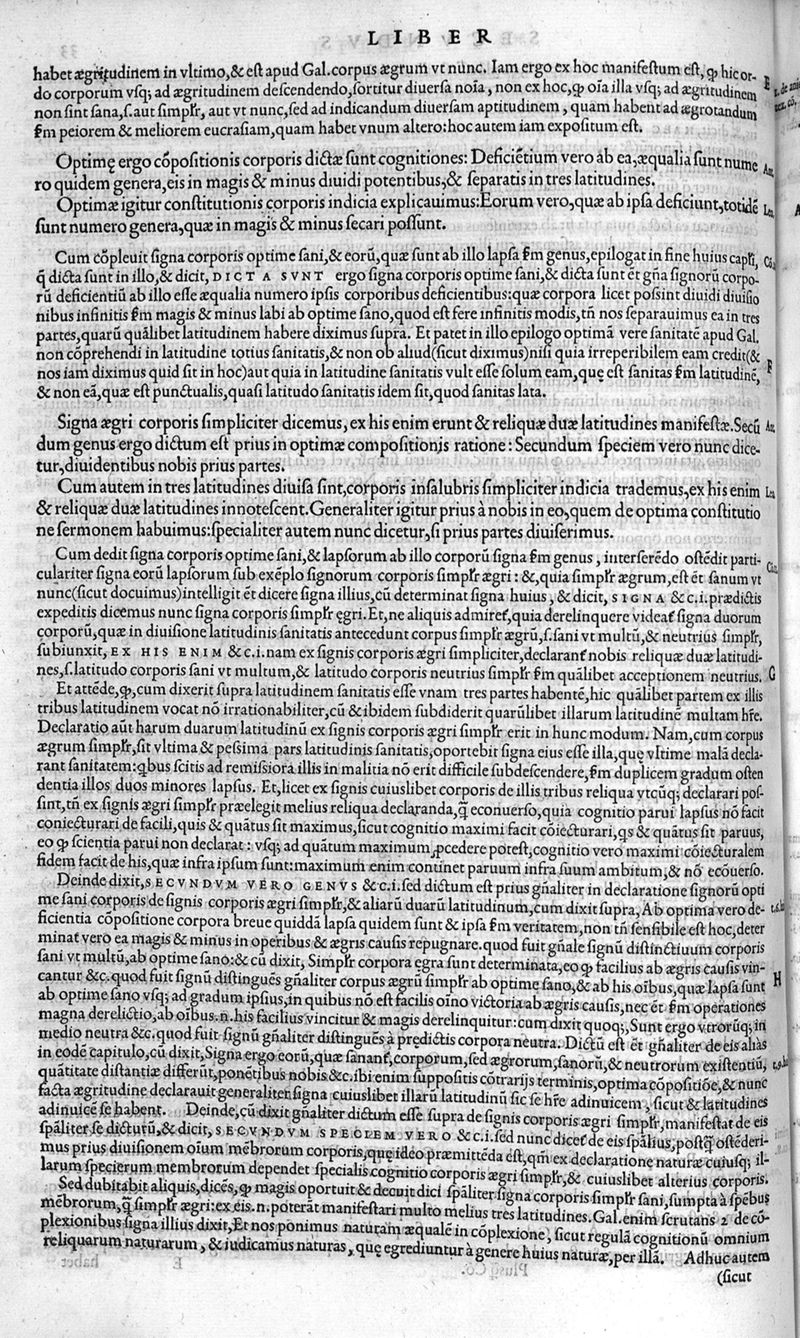 LIBER
habet ægritudinem in vltimo,& est apud Gal.corpus ægrum vt nunc. Iam ergo ex hoc manifestum est, ꝙ hic or-
do corporum vsq; ad ægritudinem descendendo, sortitur diuersa noĩa, non ex hoc,ꝙ oĩa illa vsq; ad ægritudinem
non sint sana,s.aut simplr̃, aut vt nunc,sed ad indicandum diuersam aptitudinem, quam habent ad ægrotandum
s̃m peiorem & meliorem eucrasiam,quam habet vnum altero:hoc autem iam expositum est.
Optimę ergo cõpositionis corporis dictæ sunt cognitiones: Deficiẽtium vero ab ea,æqualia sunt nume
ro quidem genera,eis in magis & minus diuidi potentibus,& separatis in tres latitudines.
Optimæ igitur constitutionis corporis indicia explicauimus:Eorum vero,quæ ab ipsa deficiunt,totidẽ
sunt numero genera,quæ in magis & minus secari possunt.
Cum cõpleuit signa corporis optime sani,& eorũ,quæ sunt ab illo lapsa s̃m genus,epilogat in fine huius capr̃i,
q̃ dicta sunt in illo,& dicit, DICTA SVNT ergo signa corporis optime sani,& dicta sunt ẽt gñia signorũ corpo-
rũ deficientiũ ab illo esse æqualia numero ipsis corporibus deficientibus:quæ corpora licet possint diuidi diuisio
nibus infinitis s̃m magis & minus labi ab optime sano,quod est fere infinitis modis,tñ nos separauimus ea in tres
partes,quarũ quãlibet latitudinem habere diximus supra. Et patet in illo epilogo optimã vere sanitatẽ apud Gal.
non cõprehendi in latitudine totius sanitatis,& non ob aliud(sicut diximus)nisi quia irreperibilem eam credit(&
nos iam diximus quid sit in hoc)aut quia in latitudine sanitatis vult esse solum eam,quę est sanitas s̃m latitudinẽ,
& non eã,quæ est punctualis,quasi latitudo sanitatis idem sit,quod sanitas lata.
Signa ægri corporis simpliciter dicemus, ex his enim erunt & reliquæ duæ latitudines manifestæ.Secũ
dum genus ergo dictum est prius in optimæ compositionis ratione: Secundum speciem vero nunc dice-
tur,diuidentibus nobis prius partes.
Cum autem in tres latitudines diuisa sint,corporis insalubris simpliciter indicia trademus,ex his enim
& reliquæ duæ latitudines innotescent.Generaliter igitur prius à nobis in eo,quem de optima constitutio
ne sermonem habuimus:specialiter autem nunc dicetur,si prius partes diuiserimus.
Cum dedit signa corporis optime sani,& lapsorum ab illo corporũ signa s̃m genus, interserẽdo ostẽdit parti-
culariter signa eorũ lapsorum sub exẽplo signorum corporis simplr̃ ægri: &,quia simplr̃ ægrum,est ẽt sanum vt
nunc(sicut docuimus)intelligit ẽt dicere signa illius,cũ determinat signa huius, & dicit, SIGNA & c.i.prædictis
expeditis dicemus nunc signa corporis simplr̃ ęgri. Et,ne aliquis admiret̃,quia derelinquere videat̃ signa duorum
corporũ,quæ in diuisione latitudinis sanitatis antecedunt corpus simplr̃ ægrũ,s.sani vt multũ,& neutrius simplr̃,
subiunxit, EX HIS ENIM & c.i.nam ex signis corporis ægri simpliciter,declarant̃ nobis reliquæ duæ latitudi-
nes,s.latitudo corporis sani vt multum,& latitudo corporis neutrius simplr̃ s̃m quãlibet acceptionem neutrius.
Et attẽde,ꝙ,cum dixerit supra latitudinem sanitatis esse vnam tres partes habentẽ,hic quãlibet partem ex illis
tribus latitudinem vocat nõ irrationabiliter,cũ & ibidem subdiderit quarũlibet illarum latitudinẽ multam hr̃e.
Declaratio aũt harum duarum latitudinũ ex signis corporis ægri simplr̃ erit in hunc modum. Nam,cum corpus
ægrum simplr̃,sit vltima & pessima pars latitudinis sanitatis,oportebit signa eius esse illa,quę vltime malã decla-
rant sanitatem:q̃bus scitis ad remissiora illis in malitia nõ erit difficile subdescendere,s̃m duplicem gradum osten
dentia illos duos minores lapsus. Et,licet ex signis cuiuslibet corporis de illis tribus reliqua vtcũq; declarari pos-
sint,tñ ex signis ægri simplr̃ præelegit melius reliqua declaranda,q̃ econuerso,quia cognitio parui lapsus nõ facit
coniecturari de facili,quis & quãtus sit maximus,sicut cognitio maximi facit cõiecturari,q̃s & quãtus sit paruus,
eo ꝙ scientia parui non declarat: vsq; ad quãtum maximum ꝓcedere potest,cognitio vero maximi cõiecturalem
fidem facit de his,quæ infra ipsum sunt:maximum enim continet paruum infra suum ambitum,& nõ ecõuerso.
Deinde dixit,SECVNDVM VERO GENVS & c.i.sed dictum est prius gñaliter in declaratione signorũ opti
me sani corporis de signis corporis ægri simplr̃,& aliarũ duarũ latitudinum,cum dixit supra, Ab optima vero de-
ficientia cõpositione corpora breue quiddã lapsa quidem sunt & ipsa s̃m veritatem,non tñ sensibile est hoc,deter
minat vero ea magis & minus in operibus & ægris causis repugnare. quod fuit gñale signũ distinctiuum corporis
sani vt multũ,ab optime sano:& cũ dixit, Simplr̃ corpora ęgra sunt determinata,eo ꝙ facilius ab ægris causis vin-
cantur &c.quod fuit signũ distinguẽs gñaliter corpus ægrũ simplr̃ ab optime sano,& ab his oĩbus,quæ lapsa sunt
ab optime sano vsq; ad gradum ipsius,in quibus nõ est facilis oĩno victoria ab ægris causis,nec ẽt s̃m operationes
magna derelictio,ab oĩbus.n.his facilius vincitur & magis derelinquitur:cum dixit quoq;,Sunt ergo vtrorũq; in
medio neutra &c.quod fuit signũ gñaliter distinguẽs à prędictis corpora neutra. Dictũ est ẽt gñaliter de eis aliàs
in eodẽ capitulo,cũ dixit,Signa ergo eorũ,quæ sanant̃,corporum,sed ægrorum,sanorũ,& neutrorum existentiũ,
quãtitate distantiæ differũt,ponẽtibus nobis &c.ibi enim suppositis cõtrarijs terminis,optima cõpositiõe,& nunc
facta ægritudine declarauit generaliter signa cuiuslibet illarũ latitudinũ sic se hr̃e adinuicem, sicut & latitudines
adinuicẽ se habent. Deinde,cũ dixit gñaliter dictum esse supra de signis corporis ægri simplr̃,manifestat de eis
sp̃aliter se dicturũ,& dicit,SECVNDVM SPECIEM VERO & c.i.sed nunc dicet̃ de eis sp̃alius,postq̃ ostẽderi-
mus prius diuisionem oĩum mẽbrorum corporis,que ideo præmittẽda est,qm̃ ex declaratione naturæ cuiusq; il-
larum specierum membrorum dependet specialis cognitio corporis ægri simplr̃,& cuiuslibet alterius corporis.
Sed dubitabit aliquis,dicẽs,ꝙ magis oportuit & decuit dici sp̃aliter signa corporis simplr̃ sani,sumpta à sp̃ebus
mẽbrorum,q̃ simplr̃ ægri:ex eis.n.poterãt manifestari multo melius tres latitudines.Gal.enim scrutans 2 de cõ-
plexionibus signa illius dixit,Et nos ponimus naturam æqualẽ in cõplexione, sicut regulã cognitionũ omnium
reliquarum naturarum, & iudicamus naturas, quę egrediuntur à genere huius naturæ,per illã. Adhuc autem
(sicut